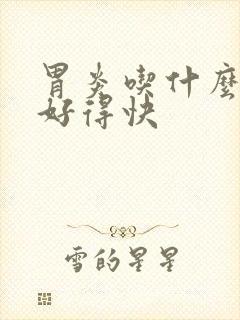 胃炎喫什麼
好得快
雪的星星